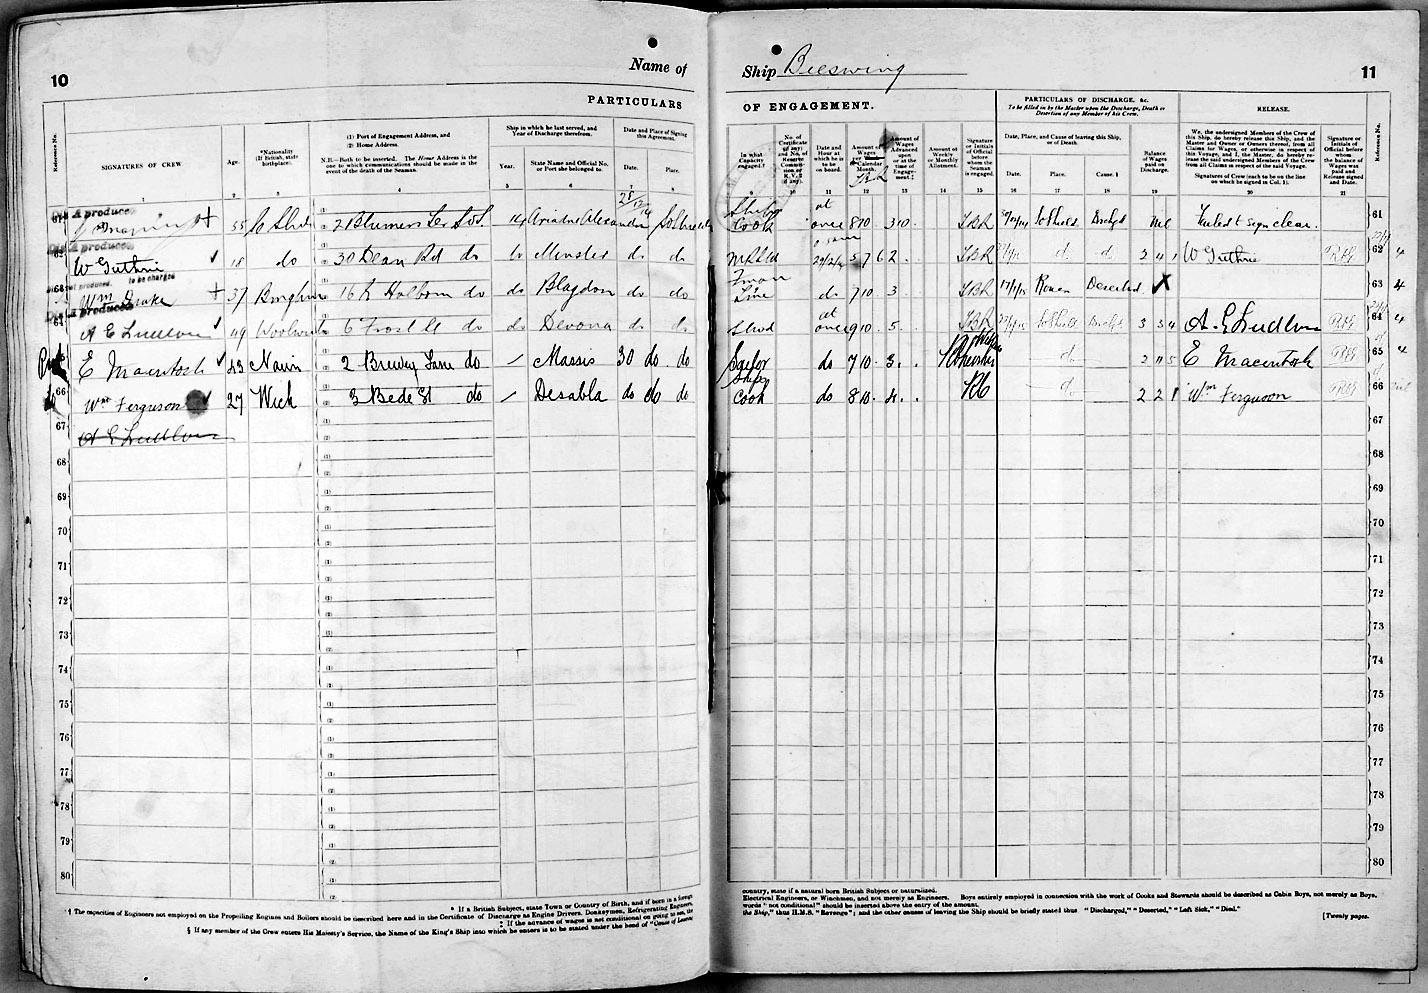 10
Name of
PARTICULARS
Reference No.
SIGNATURES OF CREW
Age.
*Nationality
(If British, state
birthplace).
(1) Port of Engagement Address, and
(2) Home Address.
N.B.—Both to be inserted. The Home Address is the
one to which communications should be made in the
event of the death of the Seaman.
Ship in which he last served, and
Year of Discharge therefrom.
Year.
State Name and Official No.
or Port she belonged to.
Date and Place of Signing
this Agreement.
Date.
Place.
1 2 3 4 5 6 7 8
28/12/14
61 Dis. A produced
55 2 Blumers Ter 14
62 Dis. A produced
W Guthrie 18 do 30 Dean Rd do Minster do do
63 not produced. to be charged
Wm Drake 37 16 Holborn do do Blagdon do do
64 Dis. A produced
A E Ludlow 49 Woolwich 6 Frost St do do Devona do do
65 E Macintosh 43 Nairn 2 Brewery Lane do Massis 30 do do
66 Wm Ferguson 27 Wick 3 Bede St do Desabla do do do
67 A E Ludlow
68
69
70
71
72
73
74
75
76
77
78
79
80
* If a British Subject, state Town or Country of Birth, and if born in a foreign
† The capacities of Engineers not employed on the Propelling Engines and Boilers should be described here and in the Certificate of Discharge as Engine Drivers, Donkeymen, Refrigerating Engineers,
‡ If the advance of wages is not conditional on going to sea, the
§ If any member of the Crew enters His Majesty's Service, the Name of the King's Ship into which he enters is to be stated under the head of "Cause of Leaving
Ship Beeswing
11
OF ENGAGEMENT.
PARTICULARS OF DISCHARGE, &c.
To be filled in by the Master upon the Discharge, Death or
Desertion of any Member of his Crew.
RELEASE.
In what
Capacity
engaged.†
No. of
Certificate
(if any)
and No. of
Reserve
Commis-
sion or
R.V.2
(if any).
Date and
Hour at
which he is
to be
on board.
Amount of
Wages
per
Calendar
Month.
Amount of
Wages
Advanced
upon
or at the
time of
Engage-
ment.‡
Amount of
Weekly
or Monthly
Allotment.
Signature
or Initials
of Official
before
whom the
Seaman
is engaged.
Date, Place, and Cause of leaving this Ship,
or of Death.
Date.
Place.
Cause.§
Balance
of Wages
paid on
Discharge.
We, the undersigned Members of the Crew of
this Ship, do hereby release this Ship, and the
Master and Owner or Owners thereof, from all
Claims for Wages, or otherwise in respect of
this Voyage, and I, the Master, do hereby re-
lease the said undersigned Members of the Crew
from all Claims in respect of the said Voyage.
Signatures of Crew (each to be on the line
on which he signed in Col. 1).
Signature or
Initials of
Official before
whom
the balance of
Wages was
paid and
Release signed
and Date.
Reference No.
9 10 11 12 13 14 15 16 17 18 19 20 21
Ships Cook at once 8 10 3 10 Nil Failed to sign clear. 61
5 7 6 2 2 4 1 W Guthrie 62
Fman Line do 7 10 3 Rouen Deserted X 63 4
Stwd at once 9 10 5 3 3 4 A. E Ludlow 64 4
Sailor do 7 10 3 2 11 5 E Macintosh 65
Ships Cook do 8 10 4 2 2 1 Wm Ferguson 66
67
68
69
70
71
72
73
74
75
76
77
78
79
80
country, state if a natural born British Subject or naturalized.
Electrical Engineers, or Winchmen, and not merely as Engineers. Boys entirely employed in connection with the work of Cooks and Stewards should be described as Cabin Boys, not merely as Boys,
words "not conditional" should be inserted above the entry of the amount.
the Ship," thus H.M.S. "Revenge"; and the other causes of leaving the Ship should be briefly stated thus "Discharged," "Deserted," "Left Sick," "Died."
[Twenty pages.